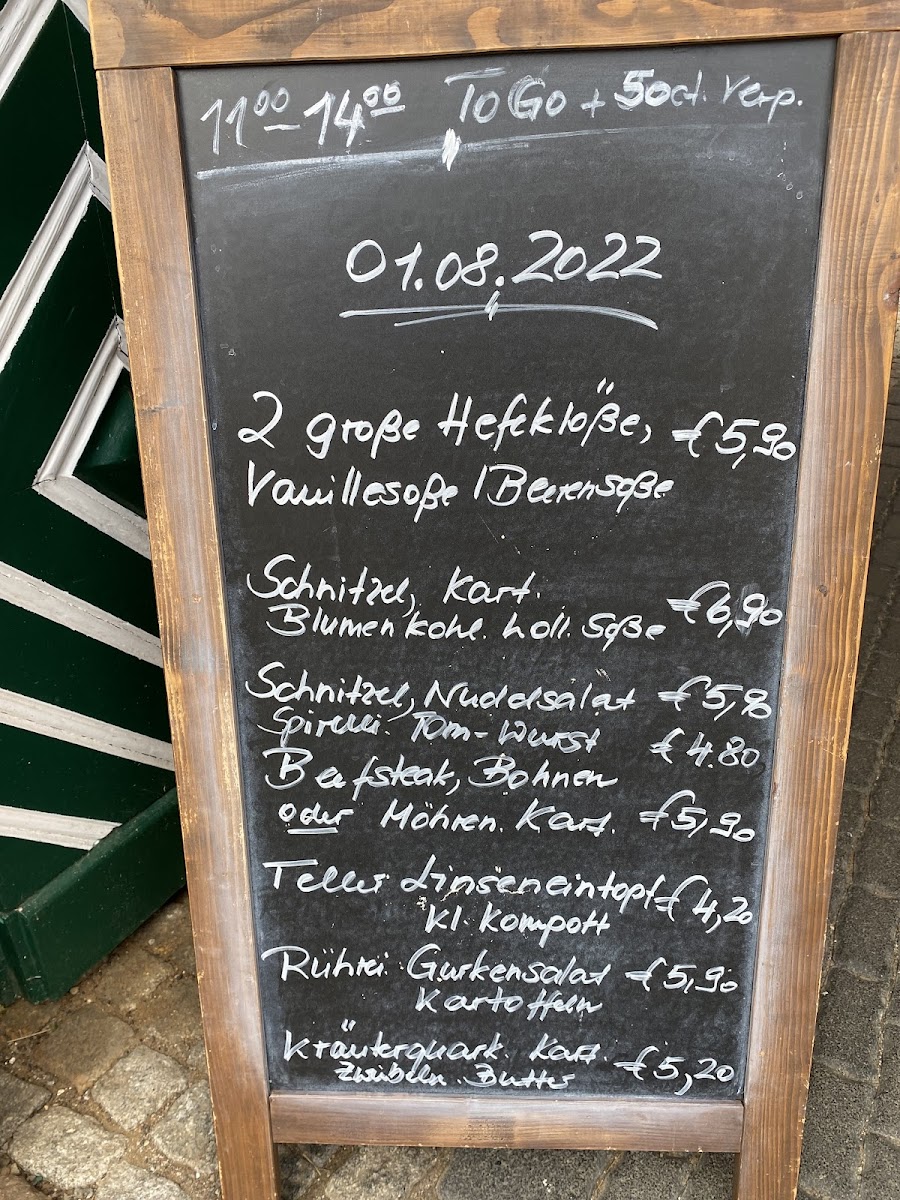 11⁰⁰ - 14⁰⁰ To Go + 50ct. Verp.
01.08.2022
2 große Hefeklöße, €5,90
Vanillesoße / Beerensoße
Schnitzel, Kart. €6,90
Blumenkohl. holl. Soße
Schnitzel, Nudelsalat €5,90
Spirelli. Tom-Wurst €4.80
Befsteak, Bohnen
oder Möhren. Kart. €5,90
Teller Linseneintopf €4,20
Kl. Kompott
Rührei. Gurkensalat €5,90
Kartoffeln
Kräuterquark. Kart. €5,20
Zwiebeln. Butter